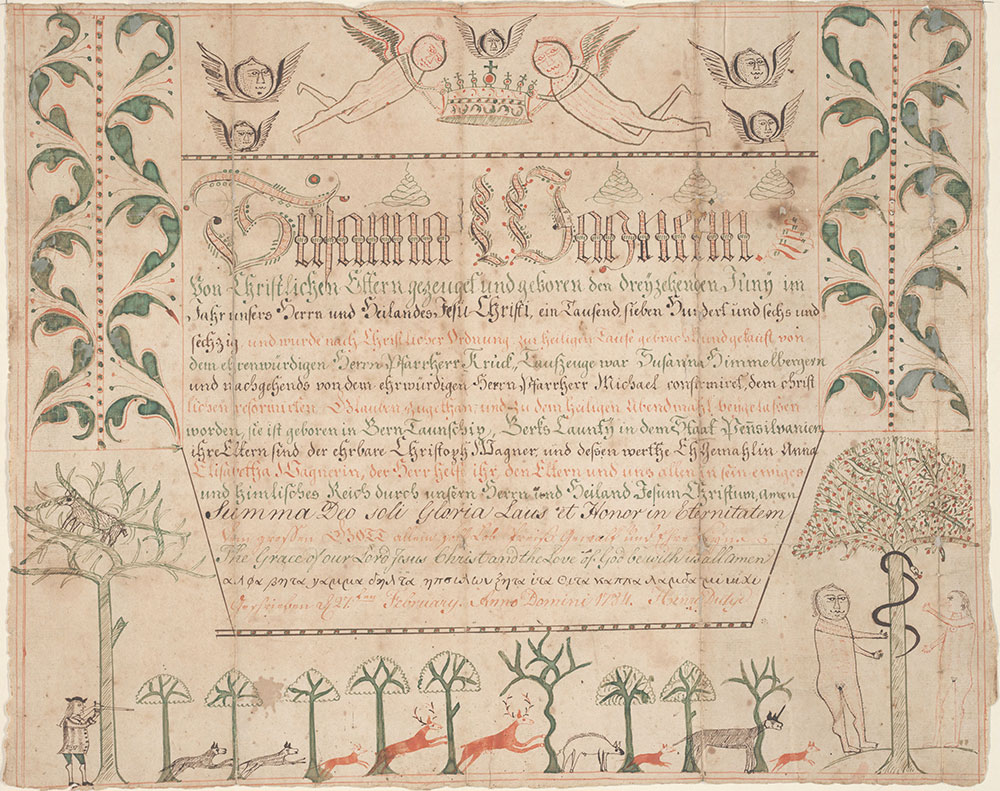 Susanna Wagnerin.
Von Christlichen Eltern gezeuget und geboren den dreyzehenden Juny im
Jahr unsers Herrn und Heilandes Jesu Christi, ein Tausend sieben Hundert und sechs und
sechzig, und wurde nach Christlicher Ordnung zur heiligen Taufe gebracht und getauft von
dem ehrenwürdigen Herrn Pfarrherr Kruck, Taufzeuge war Susanna Himmelbergern
und nachgehends von dem ehrwürdigen Herrn Pfarrherr Michael confirmiret, dem christ
lichen reformirten Glauben zugethan, und zu dem heiligen Abendmahl beygelassen
worden, sie ist geboren in Bern Taunschip, Berks Caunty in dem Staat Pensilvanien
ihre Eltern sind der ehrbare Christoph Wagner und dessen werthe Ehgemahlin Anna
Elisabetha Wagnerin, der Herr helf ihr den Eltern und uns allen in sein ewiges
und himlisches Reich durch unsern Herrn und Heiland Jesum Christum, amen
Summa Deo soli Gloria Laus et Honor in Eternitatem
Dem grossen GOTT allein
The Grace of our Lord Jesus Christ and the Love of God be with us all Amen
αλφα βητα γαμμα δηλτα ηπσιλων ζητα ιτα θιτα καππα λαμβδα μι
Geschrieben 27ten February. Anno Domini 1784.